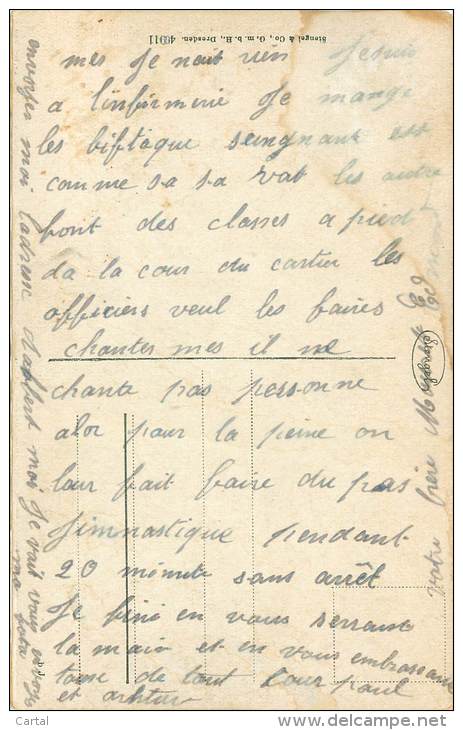 mes Je nait rien Je suis
a l'infirmerie Je mange
les biftaque seingnant est
comme sa sa vat les autre
font des classes a pied
da la cour du cartier les
officiers veul les faires
chanter mes il ne
chante pas personne
alor pour la peine on
leur fait faire du pas
Jimnastique pendant
20 minute sans arrêt
Je fini en vous serrant
la main et en vous embrassant
tous de tout cœur paul
et arthur
votre frère
envoyer moi l'adresse d'albert moi Je vait vous envoyer
ma foto
Stengel & Co., G. m. b. H., Dresden. 46911
Stengel & Co
Cartal
delcampe.net